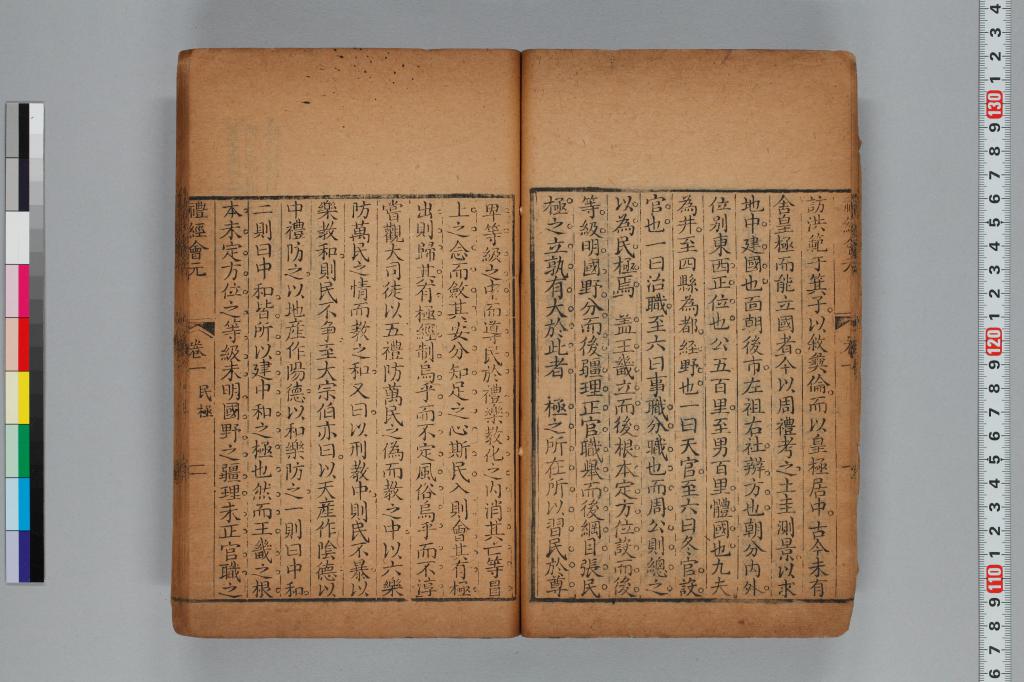 訪洪範于箕子以敘彝倫而以皇極居中古今未有
舍皇極而能立國者今以周禮考之土圭測景以求
地中建國也面朝後市左祖右社辨方也朝分內外
位别東西正位也公五百里至男百里體國也九夫
為井至四縣為都經野也一曰天官至六曰冬官設
官也一曰治職至六曰事職分職也而周公則總之
以為民極焉 盖王畿立而後根本定方位設而後
等級明國野分而後疆理正官職舉而後綱目張民
極之立孰有大於此者 極之所在所以習民於尊
卑等級之中而導民於禮樂教化之內消其亡等冒
上之念而斂其安分知足之心斯民入則會其有極
出則歸其有極經制烏乎而不定風俗烏乎而不淳
嘗觀大司徒以五禮防萬民之偽而教之中以六樂
防萬民之情而教之和又曰以刑教中則民不暴以
樂教和則民不爭至大宗伯亦曰以天產作陰德以
中禮防之以地產作陽德以和樂防之一則曰中和
二則曰中和皆所以建中和之極也然而王畿之根
本未定方位之等級未明國野之疆理未正官職之
禮經會元 卷一 民極 二